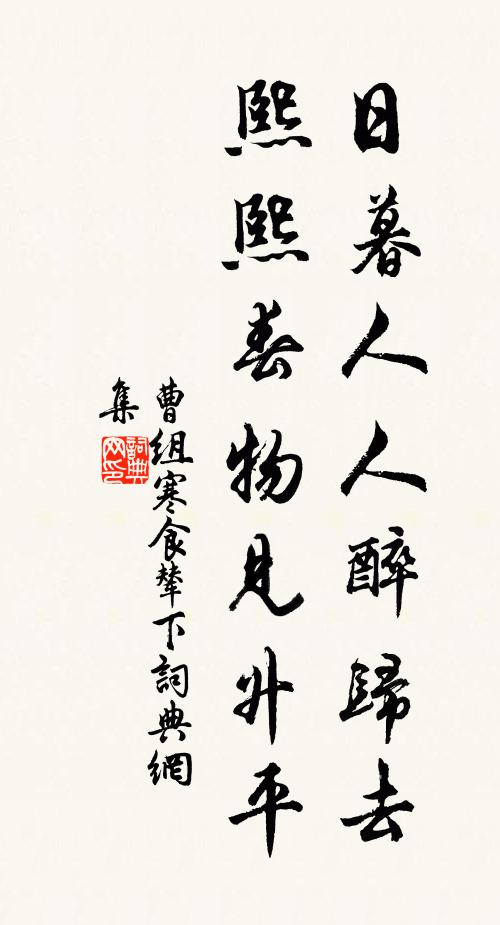 日暮人人醉歸去
熙熙春物見升平
曹組寒食輦下詞典網
集
詞典
网印